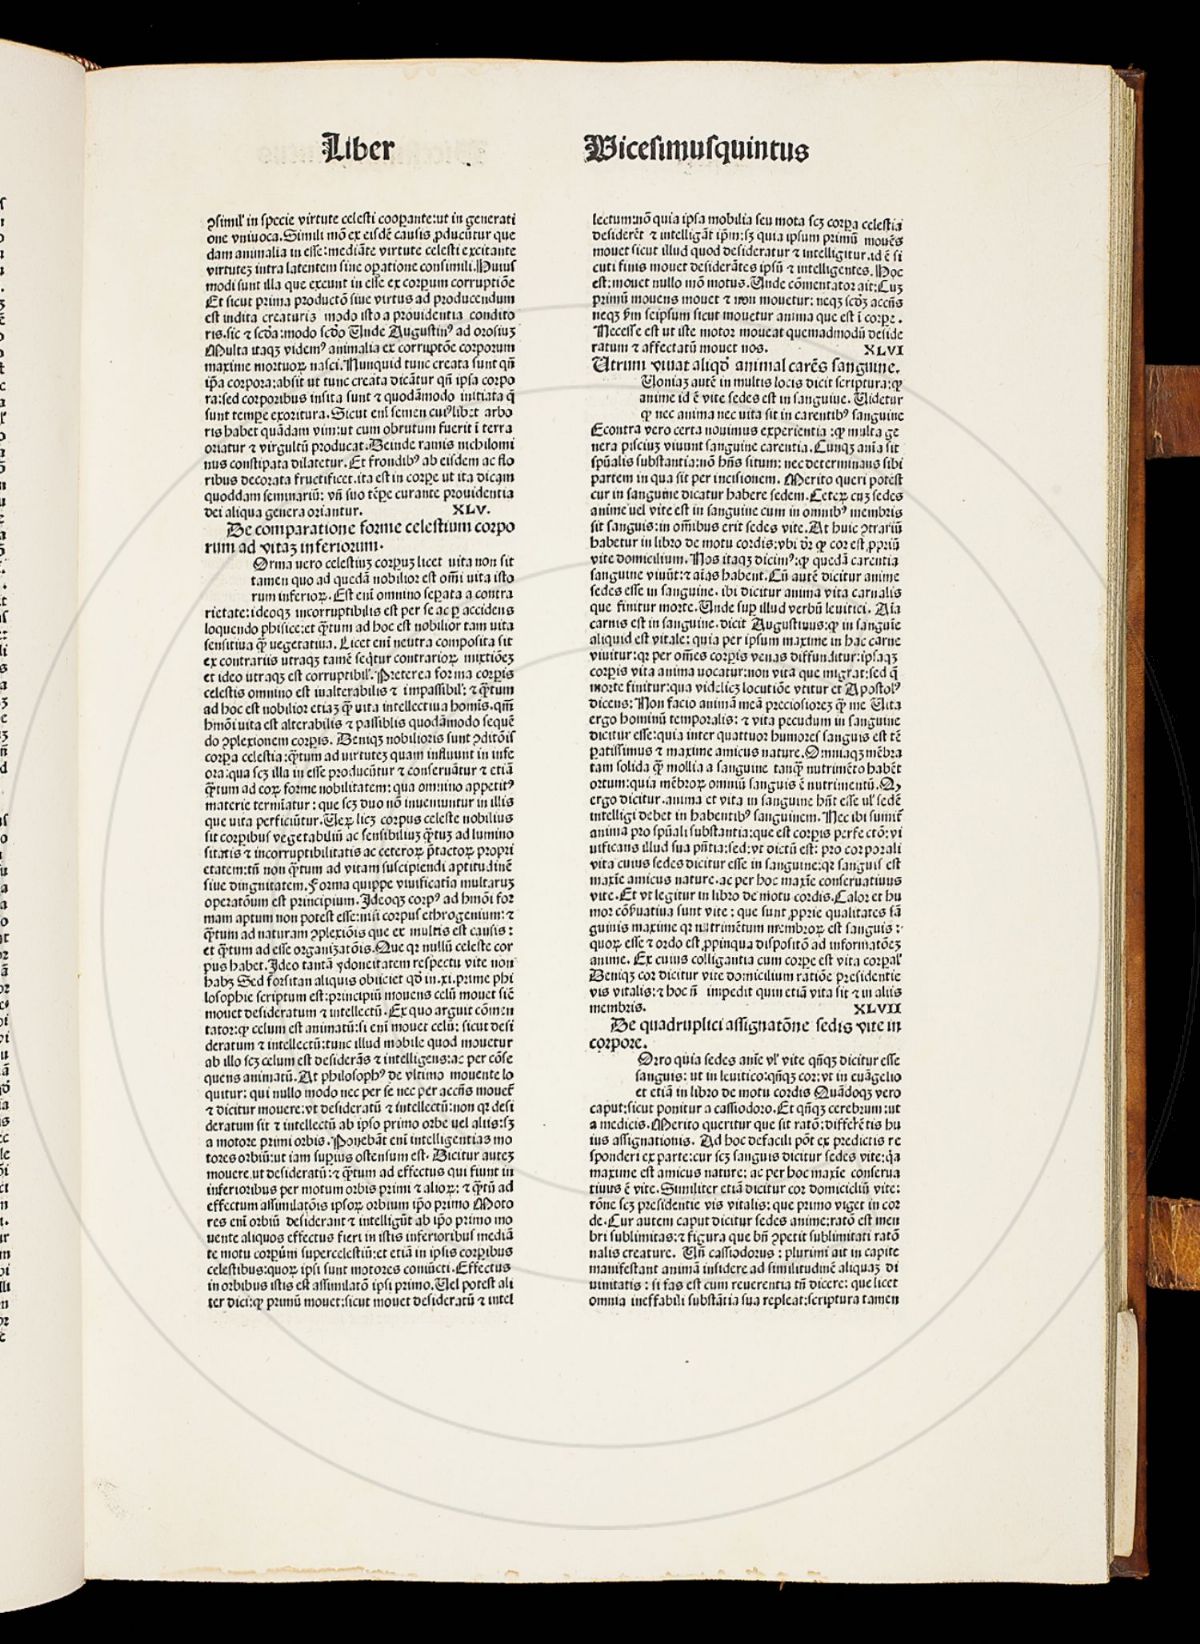 Liber
Vicesimusquintus
ꝯsimil' in specie virtute celesti cooꝑante:ut in generati
one vniuoca.Simili mō ex eisdē causis ꝓducūtur que
dam animalia in esse:mediāte virtute celesti excitante
virtuteʒ intra latentem sine oꝑatione consimili.Huius
modi sunt illa que exeunt in esse ex corꝑum corruptiōe
Et sicut prima productō siue virtus ad producendum
est indita creaturis modo isto a prouidentia condito
ris.sic ⁊ scḋa:modo scḋo Unde Augustinꝰ ad orosiuʒ
Multa itaqʒ videmꝰ animalia ex corruptōe corporum
maxime mortuoꝝ nasci.Nunquid tunc creata sunt qn̄
ip̄a corpora:absit ut tunc creata dicātur qn̄ ipsa corpo
ra:sed corporibus insita sunt ⁊ quodāmodo initiata q̄
sunt temꝑe exoritura.Sicut enī semen cuiꝰlibet arbo
ris habet quādam vim:ut cum obrutum fuerit ī terra
oriatur ⁊ virgultū producat.Deinde ramis nichilomi
nus constipata dilatetur.Et frondibꝰ ab eisdem ac flo
ribus decorata fructificet.ita est in corꝑe ut ita dicam
quoddam seminariū: vn̄ suo tēꝑe curante prouidentia
dei aliqua genera oriantur. XLV.
De comparatione forme celestium corpo
rum ad vitaʒ inferiorum.
Orma vero celestiuʒ corpuʒ licet uita non sit
tamen quo ad quedā nobilior est om̄i uita isto
rum inferioꝝ.Est enī omnino seꝑata a contra
rietate:ideoqʒ incorruptibilis est per se ac ꝑ accidens
loquendo phisice:et q̄tum ad hoc est nobilior tam uita
sensitiua q̄ vegetatiua.Licet enī neutra composita sit
ex contrariis utraqʒ tamē seq̄tur contrarioꝝ mixtiōeʒ
et ideo utraqʒ est corruptibil'.Preterea forma corꝑis
celestis omnino est inalterabilis ⁊ impassibil': ⁊ q̄tum
ad hoc est nobilior etiaʒ q̄ uita intellectiua homīs.qm̄
hm̄oi uita est alterabilis ⁊ passiblis quodāmodo sequē
do ꝯplexionem corꝑis. Deniqʒ nobilioris sunt ꝯditōis
corꝑa celestia:q̄tum ad uirtuteʒ quam influunt in infe
ora:qua scʒ illa in esse producūtur ⁊ conseruātur ⁊ etiā
q̄tum ad corꝑ forme nobilitatem: qua omnino appetitꝰ
materie termīatur : que scʒ duo nō inueniuntur in illis
que uita perficiūtur.Ueꝝ licʒ corpus celeste nobilius
sit corꝑibus vegetabiliū ac sensibiliuʒ q̄tuʒ ad lumino
sitatis ⁊ incorruptibilitatis ac ceteroꝝ p̄tactoꝝ propri
etatem:tn̄ non q̄tum ad vitam suscipiendi aptitudinē
siue dingnitatem.Forma quippe viuificatīa multaruʒ
operatōum est principium.Ideoqʒ corpꝰ ad hmōi for
mam aptum non potest esse:nisi corpus ethrogenium: ⁊
q̄tum ad naturam ꝯplexiōis que ex multis est causis :
et q̄tum ad esse organizatōis.Que qr nullū celeste cor
pus habet.Ideo tantā ydoneitatem respectu vite non
habʒ Sed forsitan aliquis obiiciet qḋ in.xi.prime phi
losophie scriptum est:principiū mouens celū mouet sic̄
mouet desideratum ⁊ intellectū.Ex quo arguit cōmen
tator:ꝙ celum est animatū:si enī mouet celū: sicut desi
deratum ⁊ intellectū:tunc illud mobile quod mouetur
ab illo scʒ celum est desiderās ⁊ intelligens:ac per cōse
quens animatū.At philosophꝰ de vltimo mouente lo
quitur: qui nullo modo nec per se nec per accn̄s mouet̄
⁊ dicitur mouere:vt desideratū ⁊ intellectū:non qr desi
deratum sit ⁊ intellectū ab ipso primo orbe uel aliis:sʒ
a motore primi orbis.Ponebāt enī intelligentias mo
tores orbiū:ut iam suꝑius ostensum est. Dicitur auteʒ
mouere.ut desideratū: ⁊ q̄tum ad effectus qui fiunt in
inferioribus per motum orbis primi ⁊ alioꝝ: ⁊ q̄tū ad
effectum assimilatōis ipsoꝝ orbium ip̄o primo Moto
res enī orbiū desiderant ⁊ intelligūt ab ip̄o primo mo
uente aliquos effectus fieri in istis inferioribus mediā
te motu corpūm supercelestiū:et etiā in ipsis corꝑibus
celestibus:quoꝝ ipsi sunt motores coniūcti.Effectus
in orbibus istis est assimilatō ipsi primo.Uel potest ali
ter dici:ꝙ primū mouet:sicut mouet desideratū ⁊ intel
lectum:nō quia ipsa mobilia seu mota scʒ corꝑa celestia
desiderēt ⁊ intelligāt ip̄m:sʒ quia ipsum primū mouēs
mouet sicut illud quod desideratur ⁊ intelligitur.id ē si
cuti finis mouet desiderātes ipsū ⁊ intelligentes.Hoc
est:mouet nullo mō motus.Unde cōmentator ait:Cuʒ
primū mouens mouet ⁊ non mouetur: neqʒ scḋʒ accn̄s
neqʒ ꝑm seipsum sicut mouetur anima que est ī corꝑe.
Necesse est ut iste motor moueat quemadmodū deside
ratum ⁊ affectatū mouet nos. XLVI
Utrum viuat aliqḋ animal carēs sanguine.
Uoniaʒ autē in multis locis dicit scriptura:ꝙ
anime id ē vite sedes est in sanguine. Uidetur
ꝙ nec anima nec uita sit in carentibꝰ sanguine
Econtra vero certa nouimus experientia :ꝙ multa ge
nera pisciuʒ viuunt sanguine carentia.Cunqʒ aīa sit
sp̄ualis substantia:nō hn̄s situm: nec determinans sibi
partem in qua sit per incisionem. Merito queri potest
cur in sanguine dicatur habere sedem.Ceteꝝ cuʒ sedes
anime uel vite est in sanguine cum in omnibꝰ membris
sit sanguis:in om̄ibus erit sedes vite.At huic ꝯtrariū
habetur in libro de motu cordis:vbi dr̄ ꝙ cor est ꝓpriū
vite domicilium.Nos itaqʒ dicimꝰ:ꝙ quedā carentia
sanguine viuūt:⁊ aīas habent.Cū autē dicitur anime
sedes esse in sanguine. ibi dicitur anima vita carnalis
que finitur morte.Unde suꝑ illud verbū leuitici. Aīa
carnis est in sanguine.dicit Augustinus:ꝙ in sanguīe
aliquid est vitale: quia per ipsum maxime in hac carne
viuitur:qr per om̄es corꝑis venas diffunditur:ipsaqʒ
corꝑis vita anima uocatur:non vita que migrat:sed q̄
morte finitur:qua videlicʒ locutiōe vtitur et Apostolꝰ
dicens: Non facio animā meā preciosioreʒ q̄ me Uita
ergo hominū temporalis: ⁊ vita pecudum in sanguine
dicitur esse:quia inter quattuor humores sanguis est tē
ꝑatissimus ⁊ maxime amicus nature.Omniaqʒ mēbra
tam solida q̄ mollia a sanguine tanq̄ nutrimēto habēt
ortum:quia mēbroꝝ omniū sanguis ē nutrimentū.Qꝫ
ergo dicitur.anima et vita in sanguine hn̄t esse ul' sedē
intelligi debet in habentibꝰ sanguinem.Nec ibi sumit̄
anima pro sp̄uali substantia:que est corꝑis perfectō:vi
uificans illud sua pn̄tia:sed:vt dictū est: pro corporali
vita cuius sedes dicitur esse in sanguine:qr sanguis est
maxīe amicus nature.ac per hoc maxīe conseruatiuus
vite.Et vt legitur in libro de motu cordis.Calor et hu
mor cōẜuatiua sunt vite : que sunt ꝓprie qualitates sā
guinis maxime qr nutrimētum membroꝝ est sanguis :
quoꝝ esse ⁊ ordo est ꝓpinqua dispositō ad informatōeʒ
anime. Ex cuius colligantia cum corꝑe est vita corꝑal'
Deniqʒ cor dicitur vite domicilium:ratiōe presidentie
vis vitalis:⁊ hoc n̄ impedit quin etiā vita sit ⁊ in aliis
membris. XLVII
De quadruplici assignatōne sedis vite in
corpore.
Orro quia sedes anīe vl' vite qn̄qʒ dicitur esse
sanguis: ut in leuitico:qn̄qʒ cor:vt in euāgelio
et etiā in libro de motu cordis Quādoqʒ vero
caput:sicut ponitur a cassiodoro.Et qn̄qʒ cerebrum:ut
a medicis.Merito queritur que sit ratō:differētis hu
ius assignationis. Ad hoc defacili pōt ex predictis re
sponderi ex parte:cur scʒ sanguis dicitur sedes vite:q̄a
maxime est amicus nature: ac per hoc maxīe conserua
tiuus ē vite.Similiter etiā dicitur cor domiciliū vite:
rōne scʒ presidentie vis vitalis: que primo viget in cor
de.Cur autem caput dicitur sedes anime:ratō est men
bri sublimitas:⁊ figura que bn̄ ꝯpetit sublimitati ratō
nalis creature. Un̄ cassiodorus : plurimi ait in capite
manifestant animā insidere ad similitudinē aliquaʒ di
uinitatis : si fas est cum reuerentia tn̄ dicere: que licet
omnia ineffabili substātia sua repleat:scriptura tamen